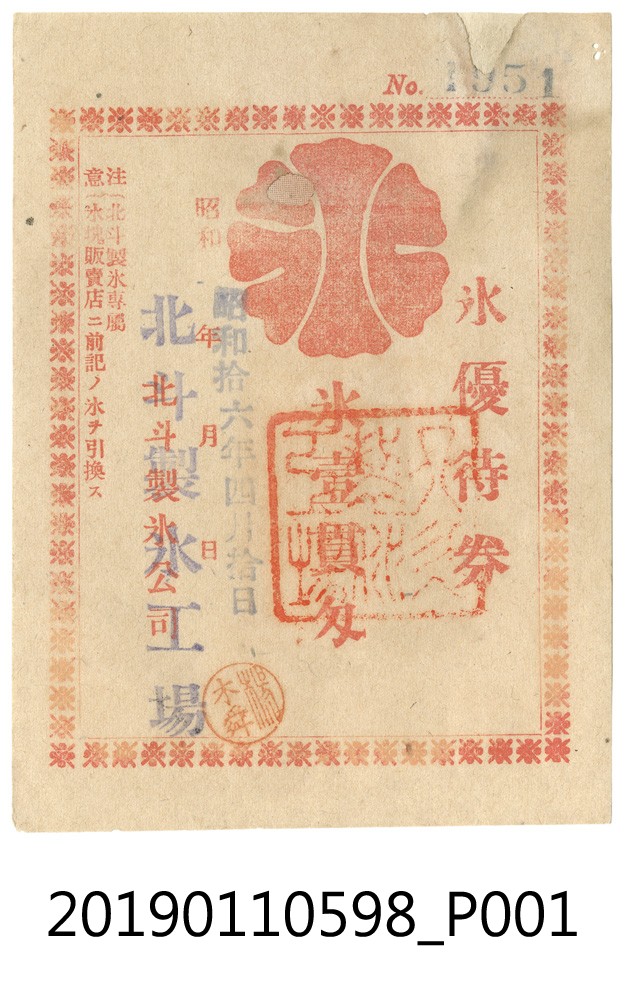 No. 1951
氷優待券
氷壹貫匁
昭和 年 月 日
昭和拾六年四月拾日
北斗製氷公司
北斗製氷工場
注意
北斗製氷專屬
氷塊販賣店ニ前記ノ氷ヲ引換ス
20190110598_P001